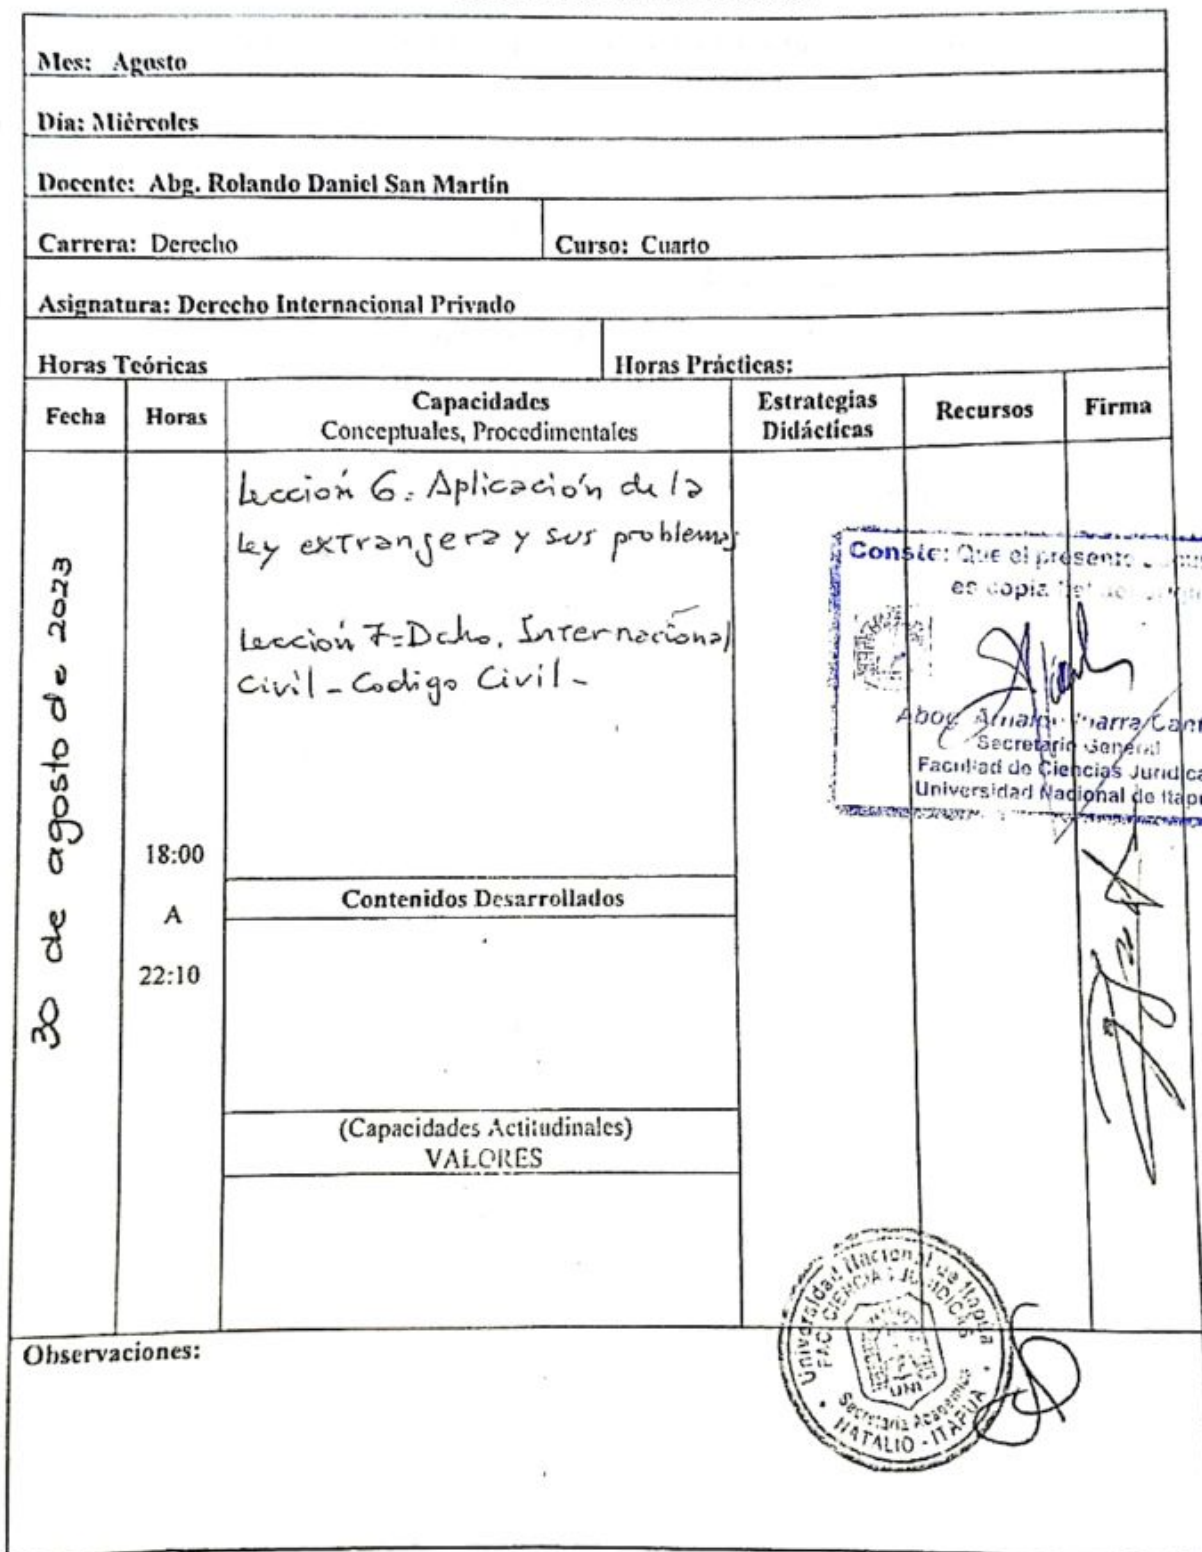 Mes: Agosto
Día: Miércoles
Docente: Abg. Rolando Daniel San Martín
Carrera: Derecho
Curso: Cuarto
Asignatura: Derecho Internacional Privado
Horas Teóricas
Horas Prácticas:
Fecha
Horas
Capacidades
Conceptuales, Procedimentales
Estrategias
Didácticas
Recursos
Firma
30 de agosto de 2023
18:00
A
22:10
Lección 6: Aplicación de la
Ley extranjera y sus problemas
Lección 7: Dcho. Internacional
Civil - Codigo Civil -
Contenidos Desarrollados
(Capacidades Actitudinales)
VALORES
Conste: Que el presente
es copia fiel del
Abog.
Secretario General
Facultad de Ciencias Jurídica
Universidad Nacional de Itap
Universidad Nacional de Itapua
FAC. CIENCIAS JURIDICAS
UNI
Secretaria Academica
NATALIO - ITAPUA
Observaciones: